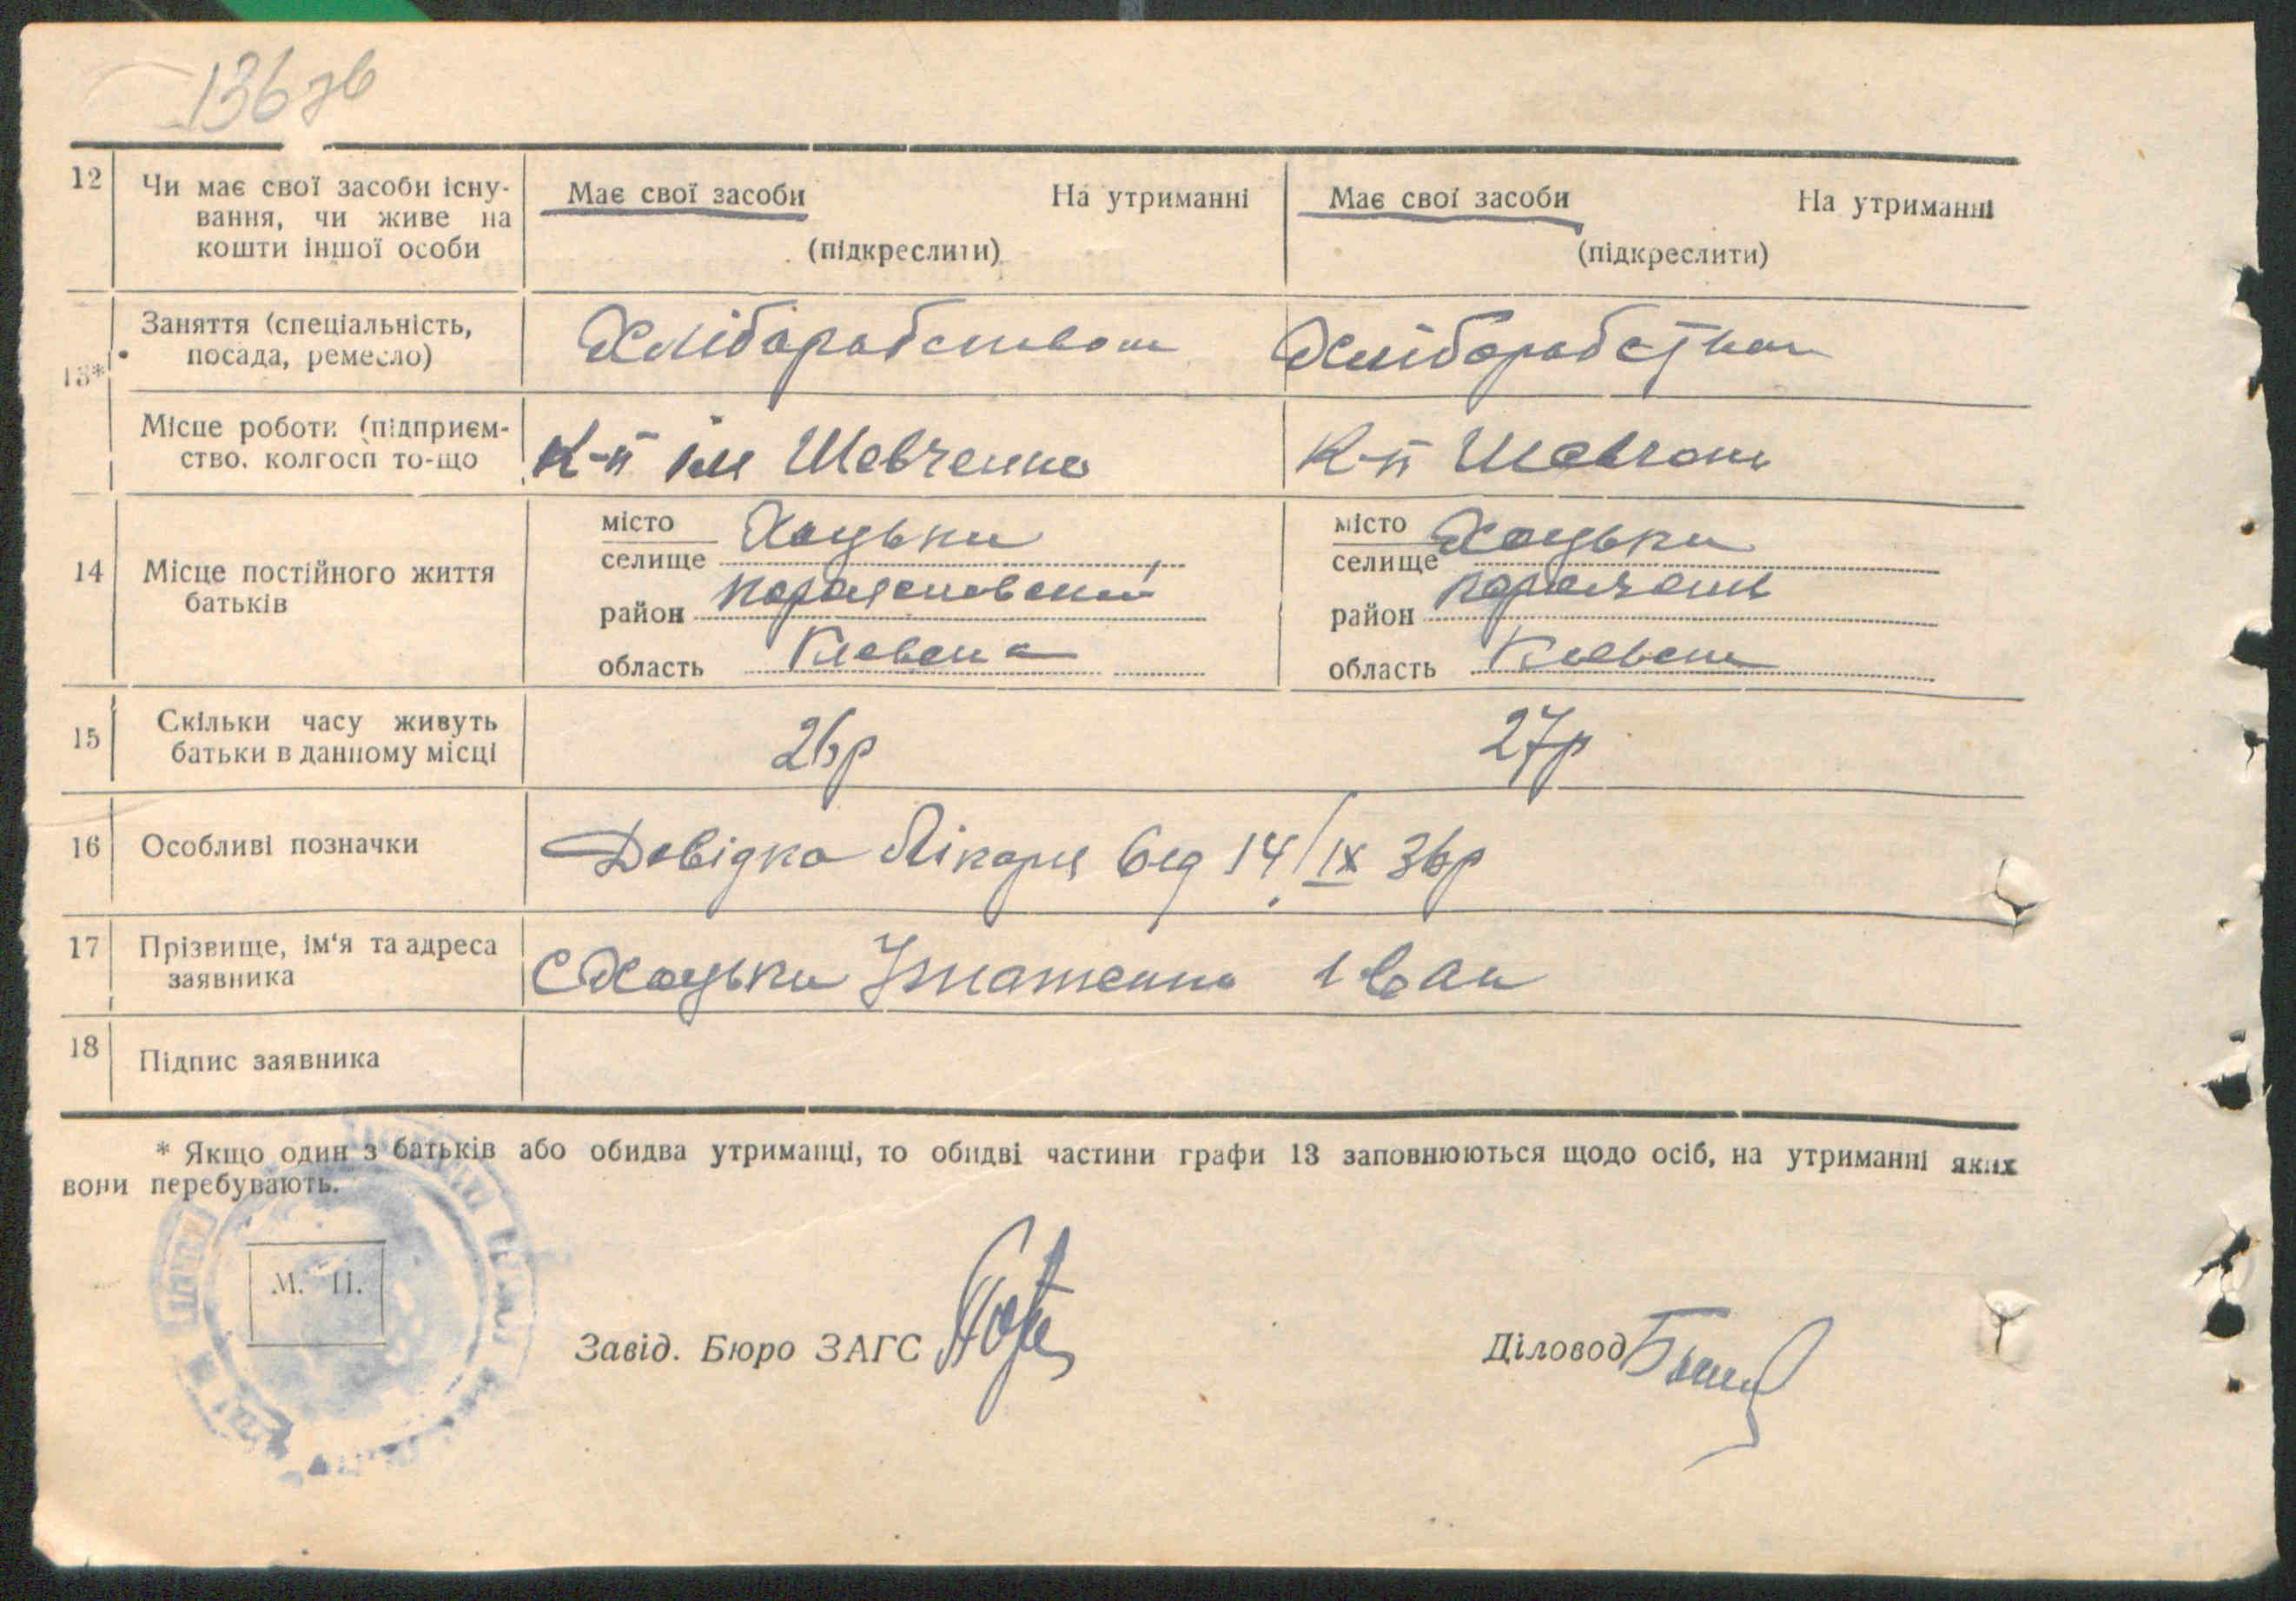 136 зв
12 Чи має свої засоби існу-
вання, чи живе на
кошти іншої особи
Має свої засоби На утриманні
(підкреслити)
Має свої засоби На утриманні
(підкреслити)
13*
Заняття (спеціальність,
посада, ремесло)
Хліборобством
Хліборобством
Місце роботи (підприєм-
ство, колгосп то-що
К-п ім Шевченко
К-п
14 Місце постійного життя
батьків
місто
селище Хоцьки
район
область Киевска
місто
селище Хоцьки
район
область
15 Скільки часу живуть
батьки в данному місці
26р
27р
16 Особливі позначки
Довідка Лікаря вид 14/IX 36р
17 Прізвище, ім'я та адреса
заявника
С Хоцьки Ігнатенко Iван
18 Підпис заявника
* Якщо один з батьків або обидва утриманці, то обидві частини графи 13 заповнюються щодо осіб, на утриманні яких
вони перебувають.
М. П.
Завід. Бюро ЗАГС
Діловод